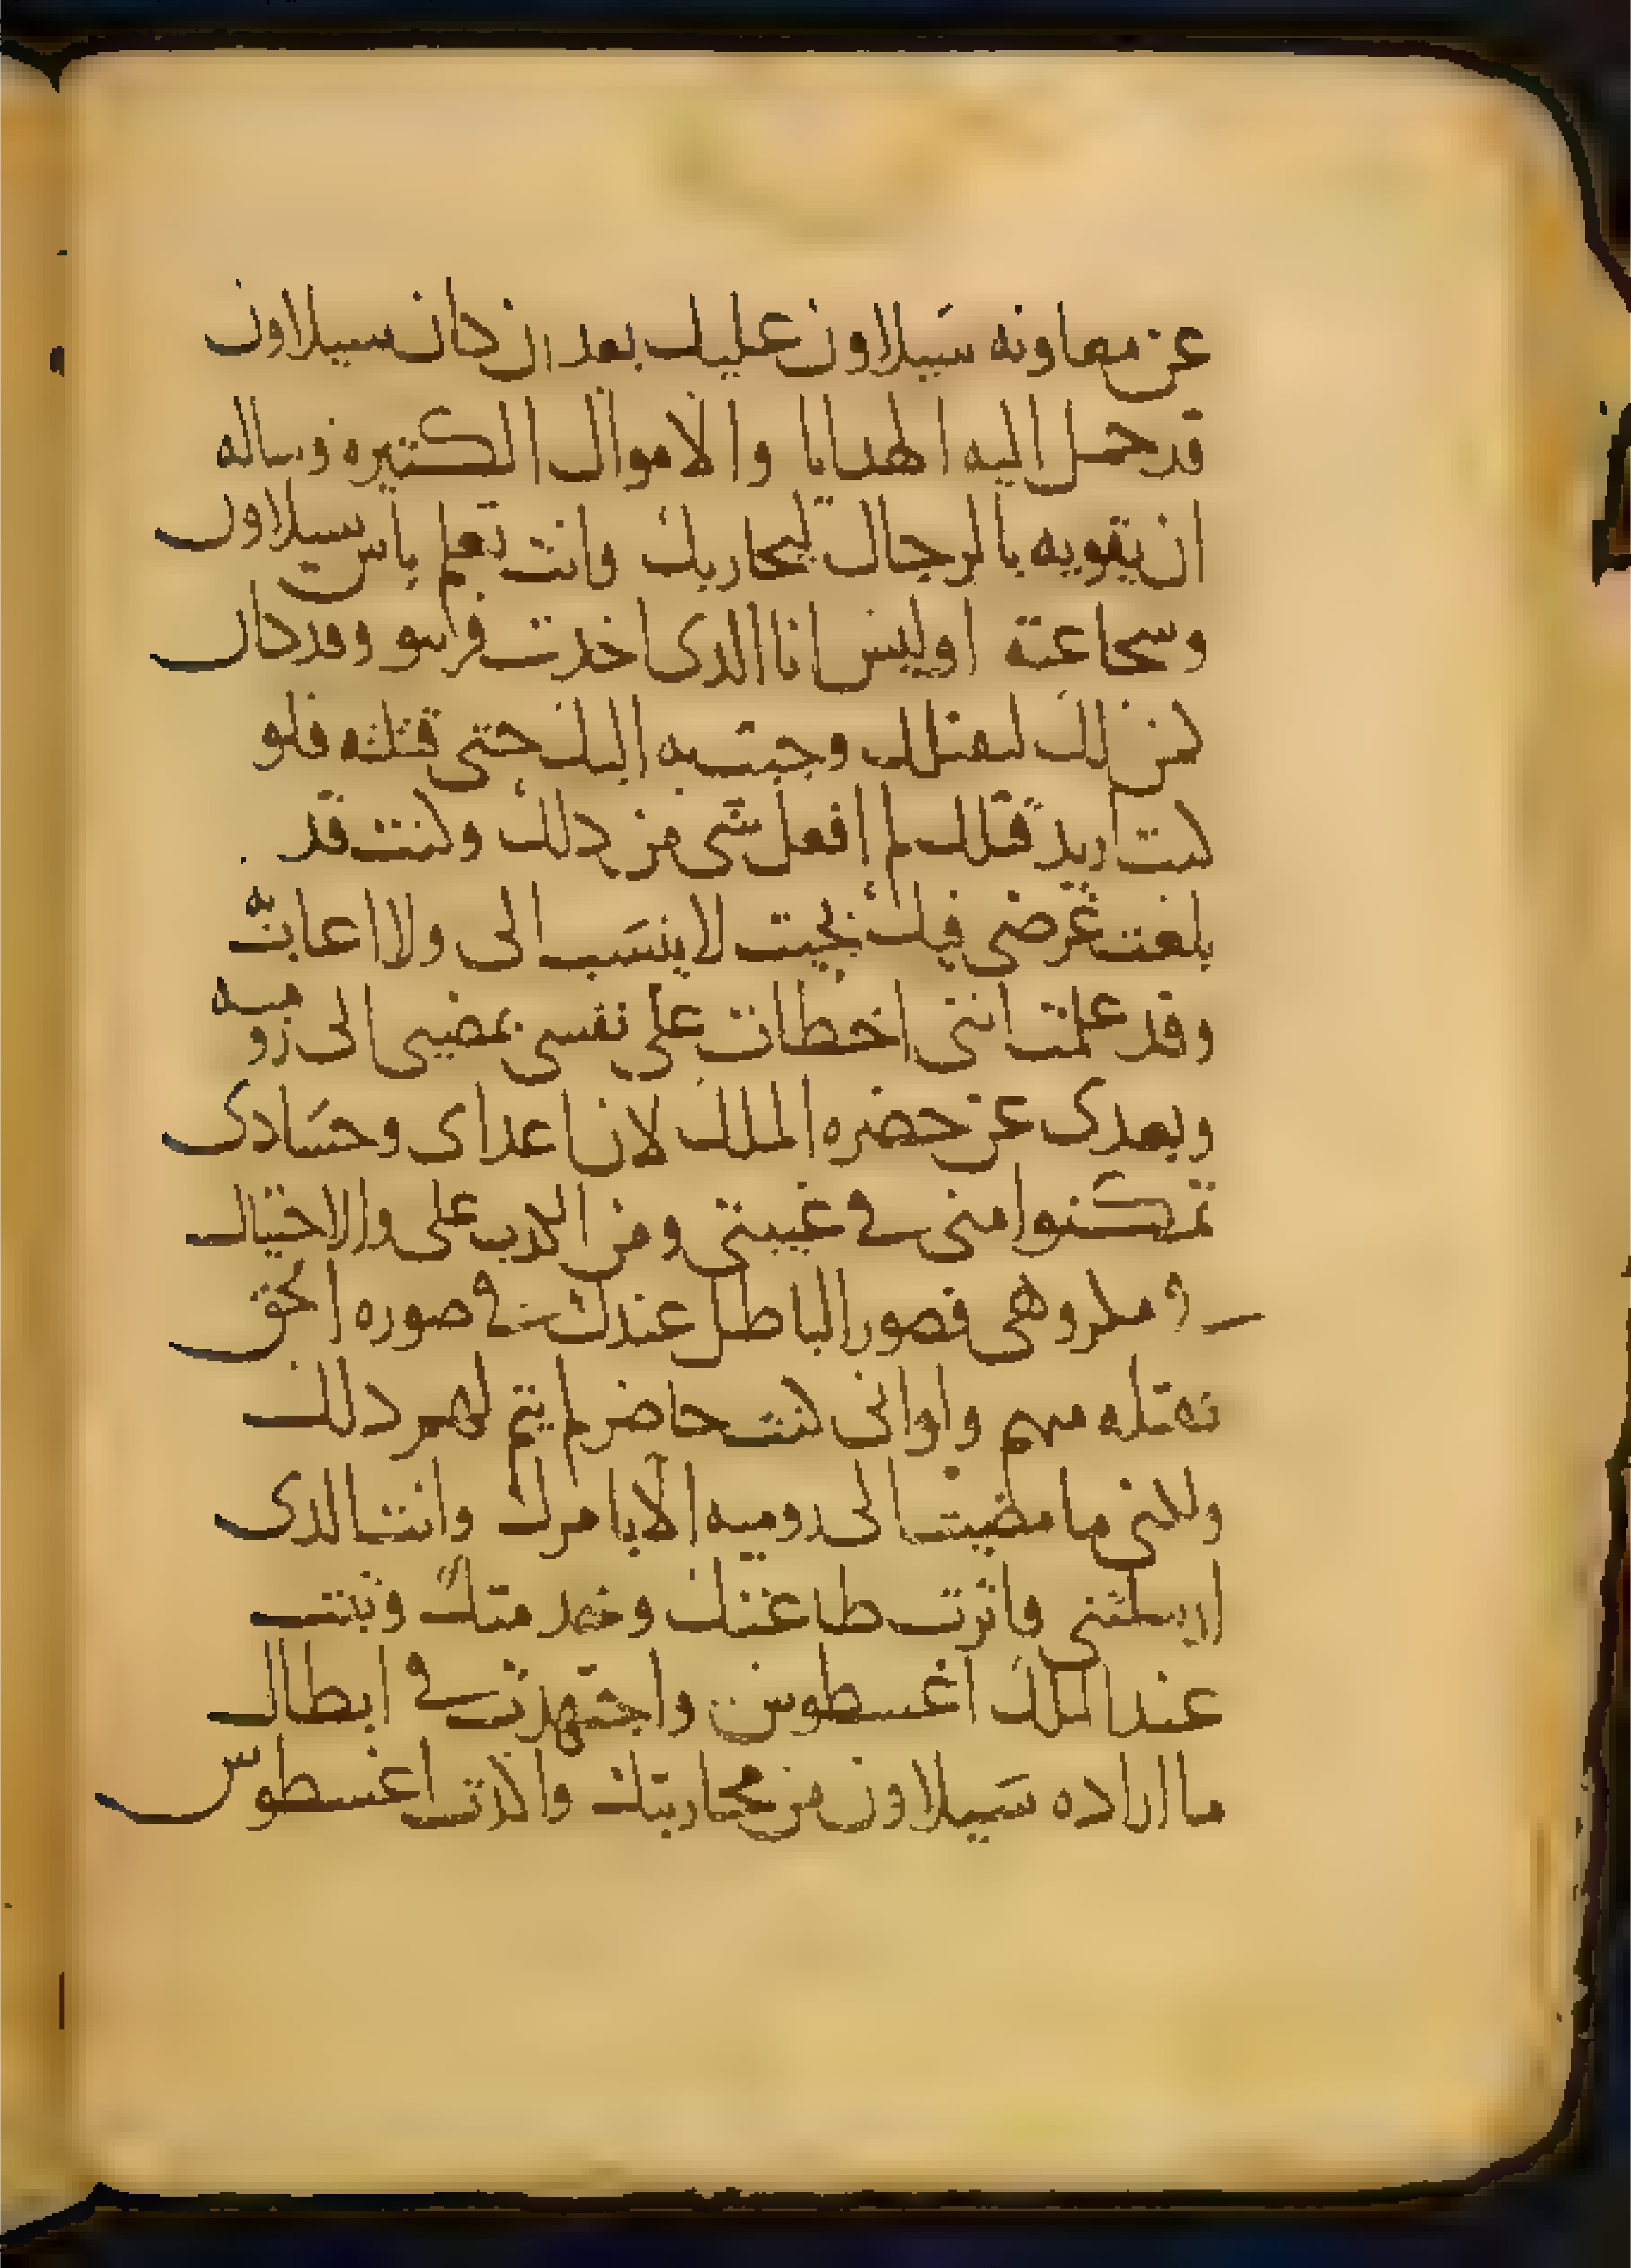 عن معاونه سيلاون عليك بعد ان كان سيلاون
قد حمل اليه الهدايا والاموال الكتيره وساله
ان يقويه بالرجال ليحاربك وانت تعلم باس سيلاون
وسجاعته اوليس انا الدى اخدت فراسو وقد كان
كمن لك ليقتلك وجيت به اليك حتى قتلته فلو
كنت اريد قتلك لم افعل شى من دلك وكنت قد
بلغت غرضى فيك بحيت لا ينسب الى ولا اعاب به
وقد علمت اننى اخطات على نفسى بمضيى الى روميه
وبعدى عن حضره الملك لان اعداى وحسادى
تمكنوا منى فى غيبتى ومن الكدب على والاحتيال
فى مكروهى فصور الباطل عندك فى صوره الحق
فقبلته منهم ولو انى كنت حاضر لم يتم لهم دلك
ولكنى ما مضيت الى روميه الا بامرك وانت الدى
ارسلتنى واثرت طاعتك وخدمتك ونبت
عند الملك اغسطوس واجتهدت فى ابطال
ما اراده سيلاون من محاربتك واكدت اغسطوس